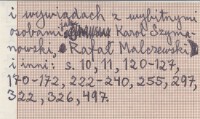 i wywiadach z wybitnymi
osobami Karol Szyma-
nowski, Rafał Malczewski)
i inni: s. 10, 11, 120-127,
170-172, 222-240, 255, 297,
322, 326, 497.